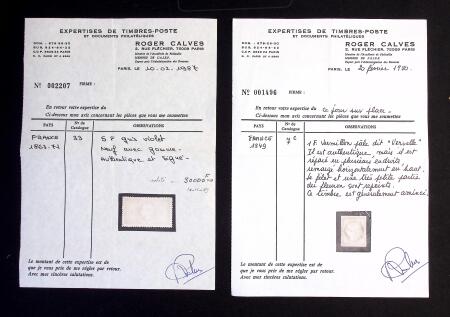 EXPERTISES DE TIMBRES-POSTE
ET DOCUMENTS PHILATÉLIQUES
ROGER CALVES
2, RUE FLÉCHIER, 75009 PARIS
PARIS, LE 10.02.1987
Nº 002207
FIRME :
En retour votre expertise du
Ci-dessous mon avis concernant les pièces que vous me soumettez
PAYS Nº du Catalogue OBSERVATIONS
FRANCE 33 5 F gris violet
1863-71 Neuf avec gomme
authentique et signé
30000
Le montant de cette expertise est de
que je vous prie de me régler par retour.
Avec mes sincères salutations.
EXPERTISES DE TIMBRES-POSTE
ET DOCUMENTS PHILATÉLIQUES
ROGER CALVES
2, RUE FLÉCHIER, 75009 PARIS
PARIS, LE 2 février 1980
Nº 001496
FIRME :
En retour votre expertise du ce jour sur place
Ci-dessous mon avis concernant les pièces que vous me soumettez
PAYS Nº du Catalogue OBSERVATIONS
FRANCE 7c 1 F. Vermillon pâle dit "Vervelle"
1849 Il est authentique, mais il est
réparé en plusieurs endroits,
remargé horizontalement en haut.
Le filet et une très petite partie
du fleuron sont repeints.
Ce timbre est généralement aminci.
Le montant de cette expertise est de
que je vous prie de me régler par retour.
Avec mes sincères salutations.